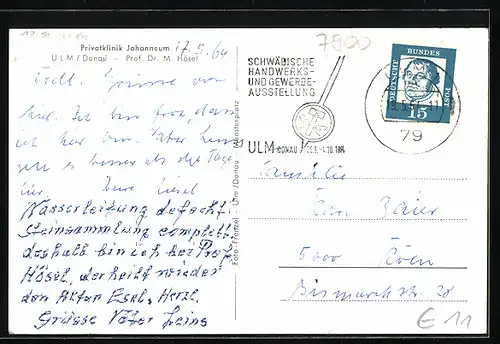 Privatklinik Johanneum
ULM/Donau - Prof. Dr. M. Hösel
17.5.64
Frdl. Grüsse von
hier. Ich bin froh, dass
ich hier bin. Vater
geht es besser als alle Tage
Eure Liesel
Wasserleitung defect
Steinsammlung complett
deshalb bin ich bei Prof.
Hösel, der heilt wieder
den Alten Esel, Herzl.
Grüsse Vater Heins
Foto Frenzel - Ulm/Donau Münsterplatz
7900
SCHWÄBISCHE
HANDWERKS-
UND GEWERBE-
AUSSTELLUNG
ULM DONAU
79
DEUTSCHE BUNDES POST
15
Familie
Zaier
5000 Köln
Bismarckstr. 28
€ 11